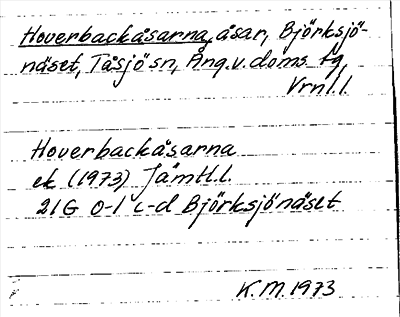 Hoverbackåsarna, åsar, Björksjö-
näset, Tåsjö sn, Ång.v.doms tg,
Vrnl.l.
Hoverbackåsarna
ek (1973) Jämtl.l.
21G 0-1 c-d Björksjönäset
K.M. 1973